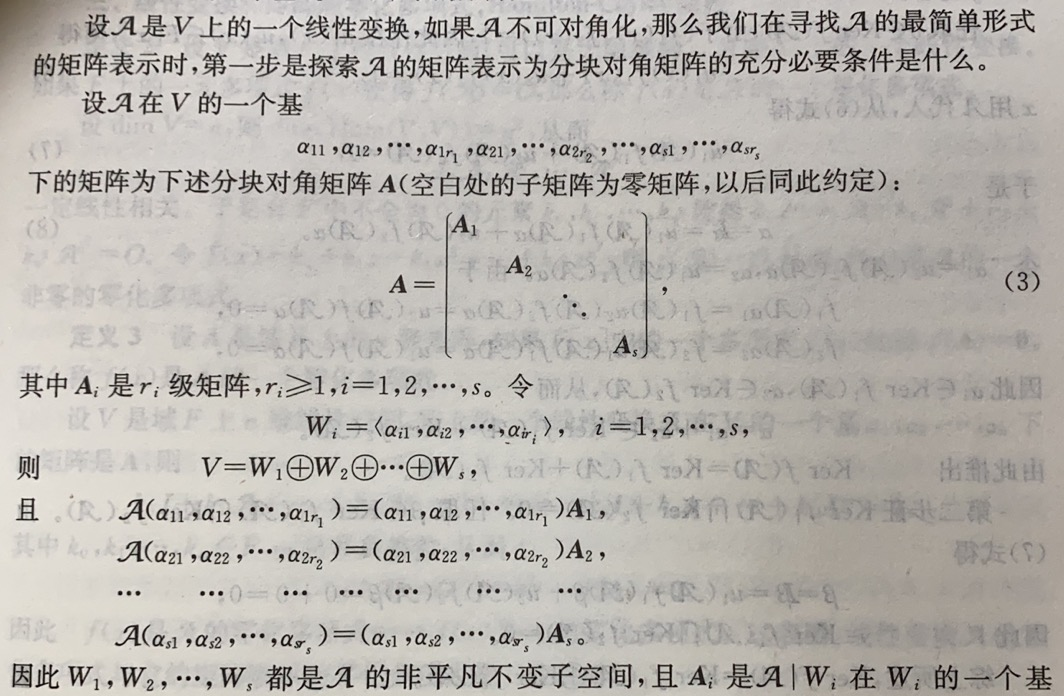 设𝒜是 V 上的一个线性变换,如果𝒜不可对角化,那么我们在寻找𝒜的最简单形式
的矩阵表示时,第一步是探索𝒜的矩阵表示为分块对角矩阵的充分必要条件是什么。
设𝒜在 V 的一个基
α₁₁,α₁₂,⋯,α₁r₁,α₂₁,⋯,α₂r₂,⋯,αs₁,⋯,αsrs
下的矩阵为下述分块对角矩阵 A(空白处的子矩阵为零矩阵,以后同此约定):
A₁
A₂
A= ⋱ , (3)
As
其中 Aᵢ 是 rᵢ 级矩阵,rᵢ≥1,i=1,2,⋯,s。令
Wᵢ=⟨αᵢ₁,αᵢ₂,⋯,αᵢrᵢ⟩, i=1,2,⋯,s,
则 V=W₁⊕W₂⊕⋯⊕Ws,
且 𝒜(α₁₁,α₁₂,⋯,α₁r₁)=(α₁₁,α₁₂,⋯,α₁r₁)A₁,
𝒜(α₂₁,α₂₂,⋯,α₂r₂)=(α₂₁,α₂₂,⋯,α₂r₂)A₂,
⋯ ⋯ ⋯ ⋯ ⋯ ⋯ ⋯
𝒜(αs₁,αs₂,⋯,αsrs)=(αs₁,αs₂,⋯,αsrs)As。
因此 W₁,W₂,⋯,Ws 都是𝒜 的非平凡不变子空间,且 Aᵢ 是𝒜|Wᵢ 在 Wᵢ 的一个基